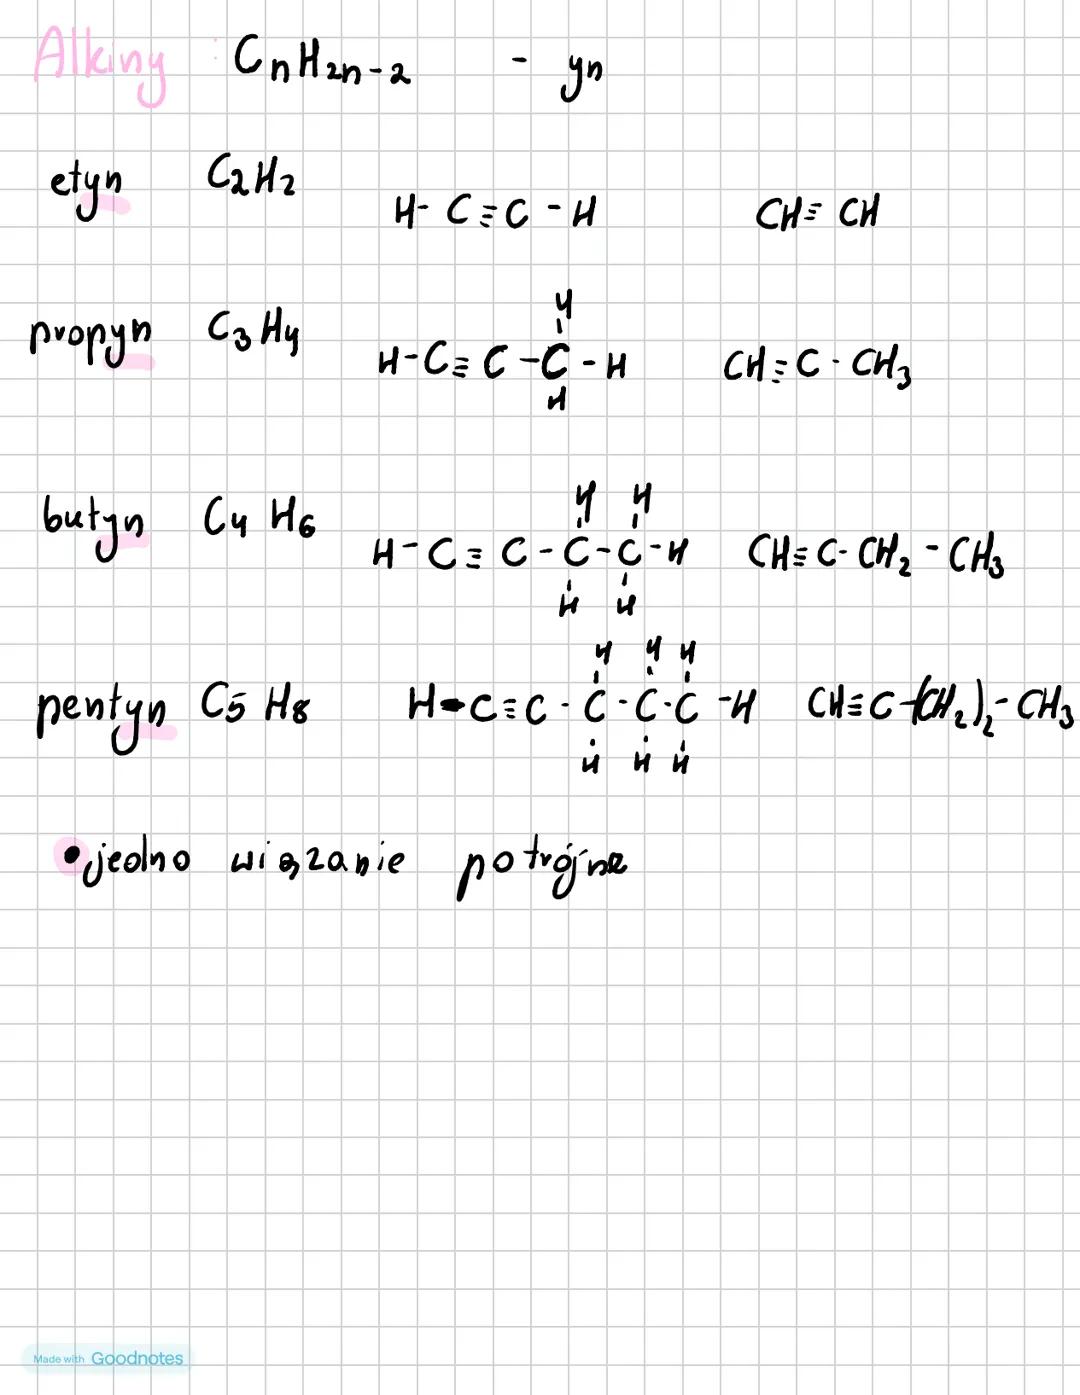 Alkiny : CnH2n-2 - yn
etyn C2H2 H-C≡C-H CH≡CH
H
propyn C3H4 H-C≡C-C-H CH≡C-CH3
H
H H
butyn C4H6 H-C≡C-C-C-H CH≡C-CH2-CH3
H H
H H H
pentyn C5H8 H-C≡C-C-C-C-H CH≡C-(CH2)2-CH3
H H H
• jedno wiązanie potrójne
Made with Goodnotes